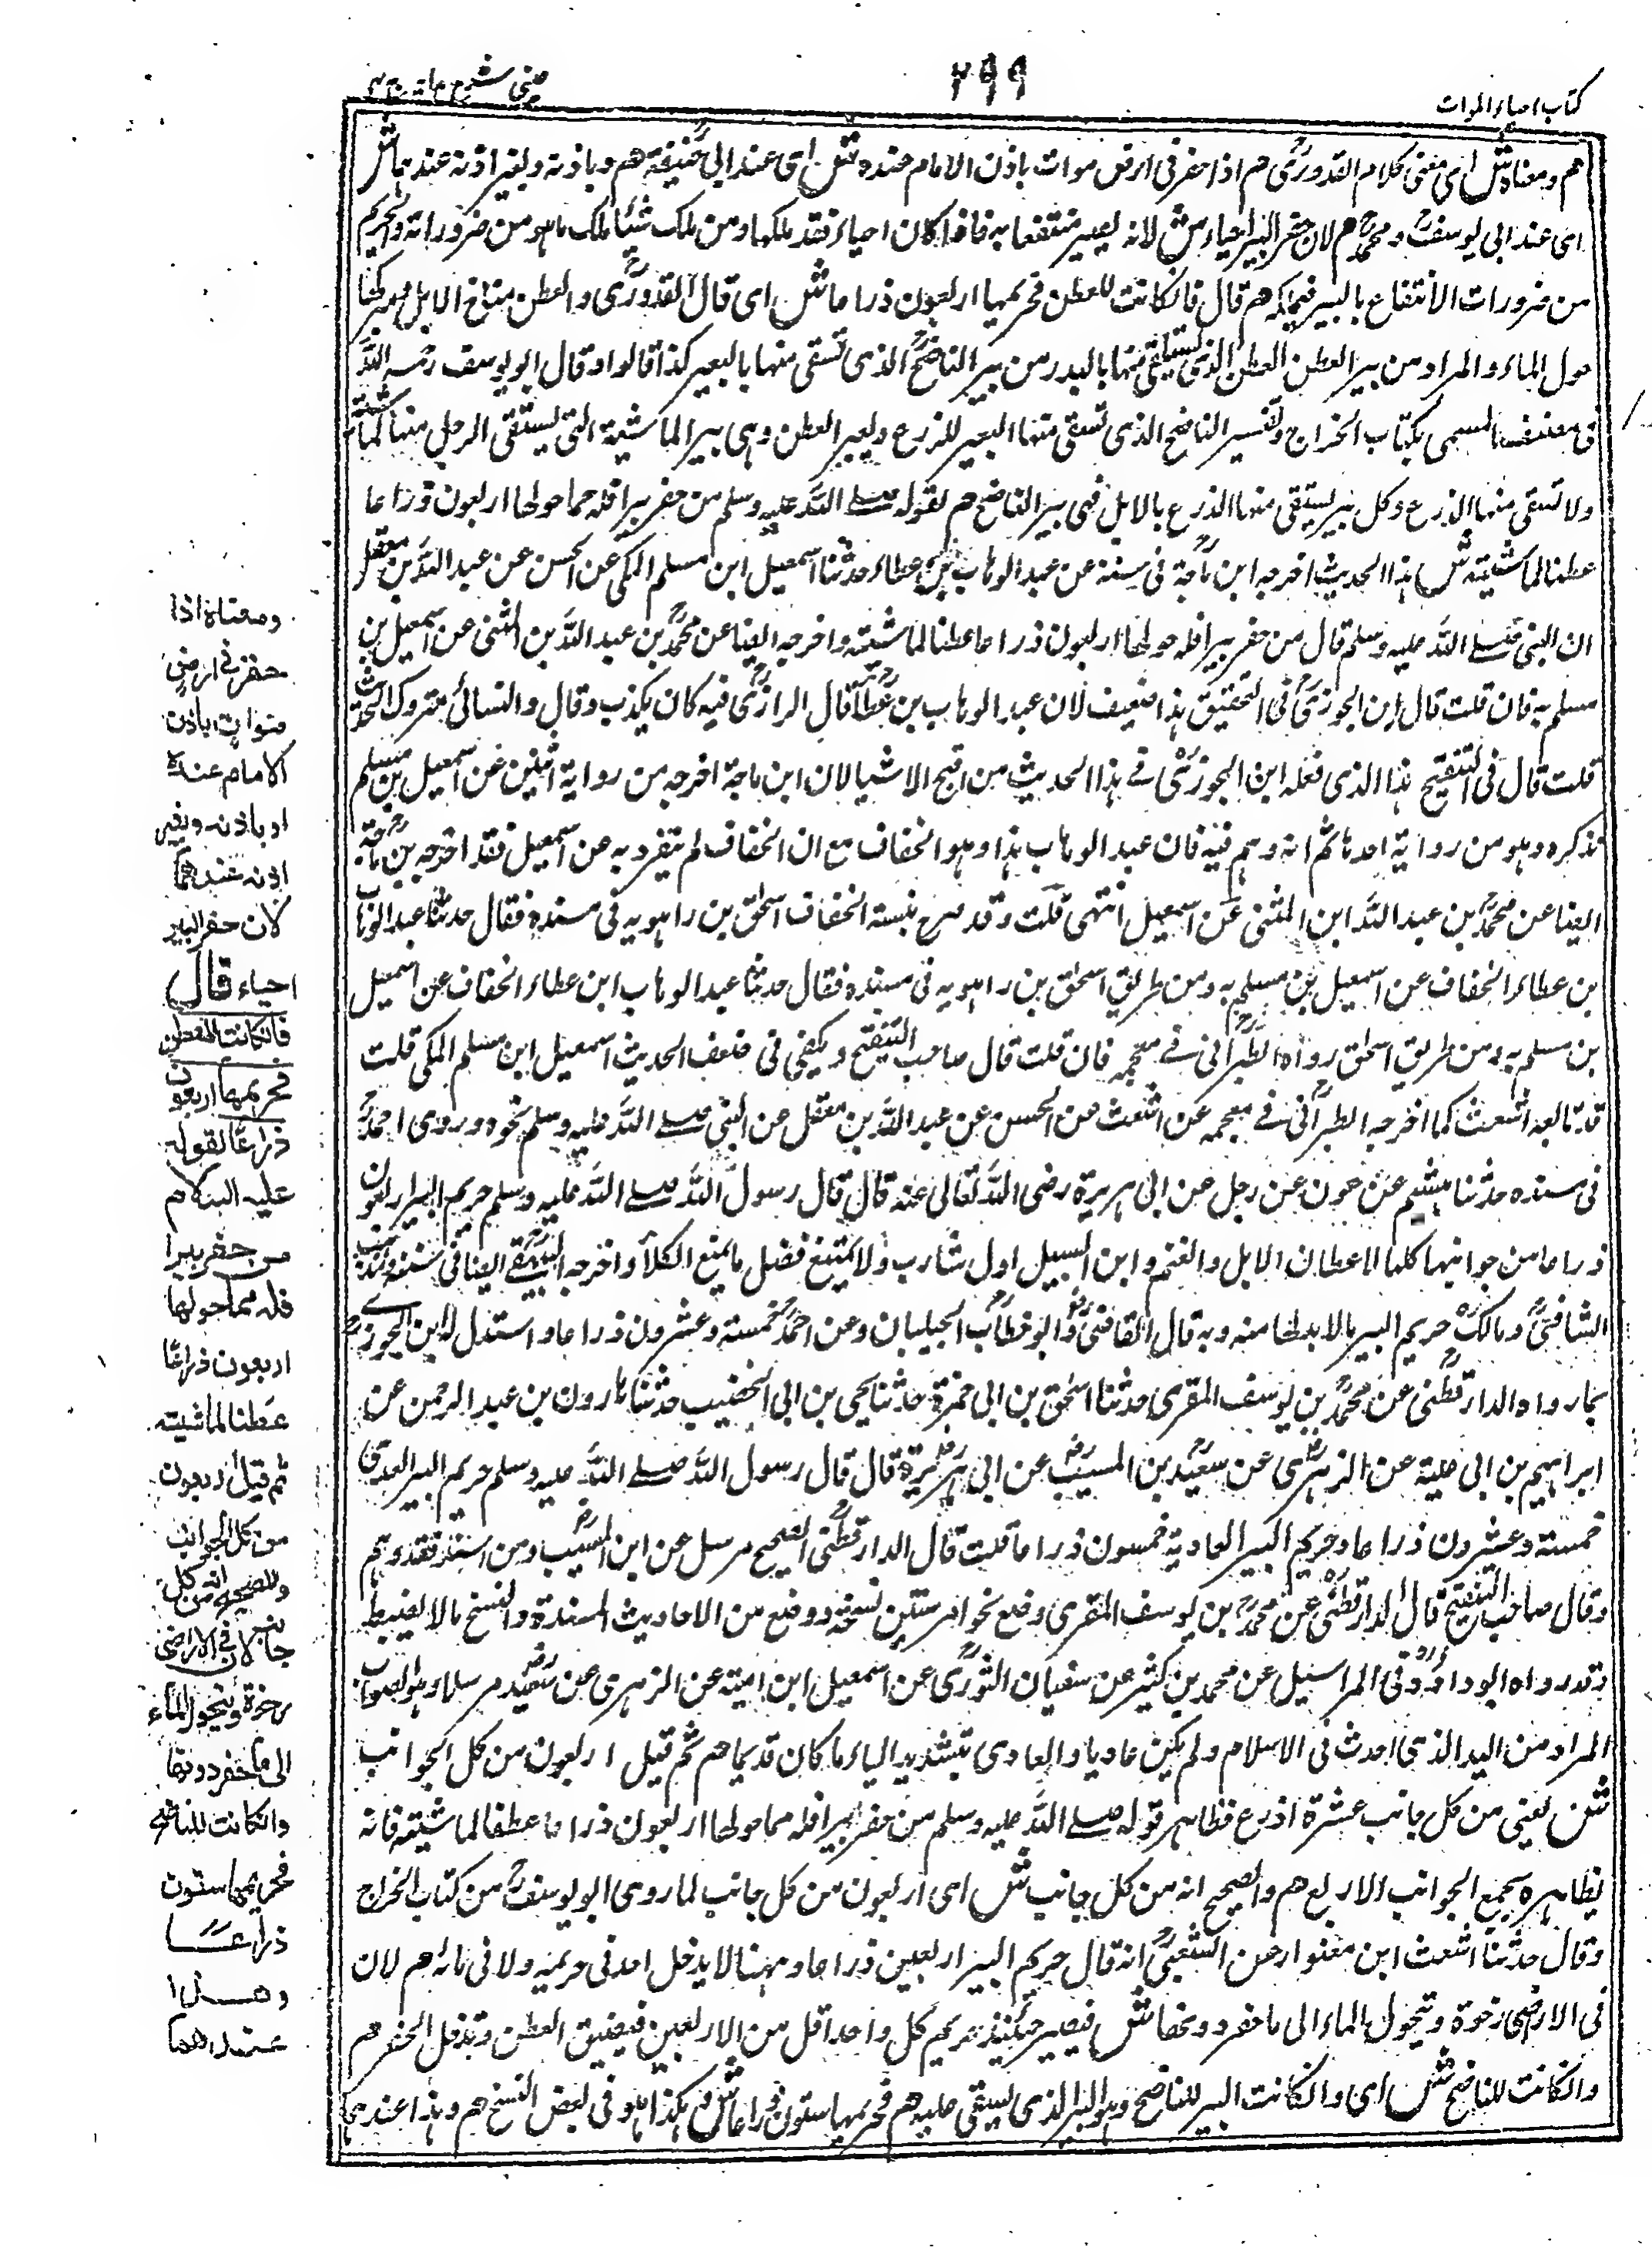 كتاب احياء الموات
٢٩٩
عينى شرح هدايه
هم ومعناه ش اى معنى كلام القدورى هم اذا حفر فى ارض موات باذن الامام عنده ش اى عند ابى حنيفة هم وباذنه ولغير اذنه عندهما ش
اى عند ابى يوسف ومحمد هم لان حفر البير احياء ش لانه يصير منتفعا به فاذا كان احياء فقد ملكها ومن ملك شيئا ملك ما هو من ضروراته والحريم
من ضرورات الانتفاع بالبير فيملكه هم قال فانكانت للعطن فحريمها اربعون ذراعا ش اى قال القدورى والعطن مناخ الابل ومبركها
حول الماء والمراد من بير العطن العطن الذى يستقى منها باليد ومن بير الناضح الذى تسقى منها بالبعير كذا قالوا وقال ابو يوسف رحمه الله
فى مصنفه المسمى بكتاب الخراج وتفسير الناضح الذى تسقى منها البعير للزرع وبير العطن وهى بير الماشية التى يستقى الرجل منها لماشيته
ولا تسقى منها الزرع وكل بير يستقى منها الزرع بالابل فهى بير الناضح هم لقوله صلى الله عليه وسلم من حفر بيرا فله مما حولها اربعون ذراعا
عطنا لماشيته ش هذا الحديث اخرجه ابن ماجة فى سننه عن عبد الوهاب بن عطاء حدثنا اسمعيل ابن مسلم المكى عن الحسن عن عبد الله بن مغفل
ان النبى صلى الله عليه وسلم قال من حفر بيرا فله حولها اربعون ذراعا عطنا لماشيته واخرجه ايضا عن محمد بن عبد الله بن المثنى عن اسمعيل بن
مسلم به فان قلت قال ابن الجوزى فى التحقيق هذا ضعيف لان عبد الوهاب بن عطا قال الرازى فيه كان يكذب وقال والنسائى متروك الحديث
قلت قال فى التنقيح هذا الذى فعله ابن الجوزى فى هذا الحديث من اقبح الاشيا لان ابن ماجة اخرجه من رواية اثنين عن اسمعيل بن مسلم
فذكره وهو من رواية احدهما ثم انه وهم فيه فان عبد الوهاب هذا وهو الخفاف مع ان الخفاف لم يتفرد به عن اسمعيل فقد اخرجه بن ماجة
ايضا عن محمد بن عبد الله ابن المثنى عن اسمعيل انتهى قلت وقد صرح بنسبة الخفاف اسحق بن راهويه فى مسنده فقال حدثنا عبد الوهاب
بن عطاء الخفاف عن اسمعيل بن مسلم به ومن طريق اسحق بن راهويه فى مسنده فقال حدثنا عبد الوهاب ابن عطاء الخفاف عن اسمعيل
بن مسلم به ومن طريق اسحق رواه الطبرانى فى معجمه فان قلت قال صاحب التنقيح ويكفى فى ضعف الحديث اسمعيل ابن مسلم المكى قلت
قد تابعه اشعث كما اخرجه الطبرانى فى معجمه عن اشعث عن الحسن عن عبد الله بن مغفل عن النبى صلى الله عليه وسلم نحوه وروى احمد
فى مسنده حدثنا هشيم عن عون عن رجل عن ابى هريرة رضى الله تعالى عنه قال قال رسول الله صلى الله عليه وسلم حريم البير اربعون
ذراعا من جوانبها كلها لاعطان الابل والغنم وابن السبيل اول شارب ولا يمنع فضل ما يمنع الكلأ واخرجه البيهقى ايضا فى سننه ومذهب
الشافعى ومالك حريم البير مالا بد لها منه وبه قال القاضى وابو خطاب الحبليان وعن احمد خمسة وعشرون ذراعا واستدل له ابن الجوزى
بما رواه الدارقطنى عن محمد بن يوسف المقرى حدثنا اسحق بن ابى حمزة حدثنا يحيى بن ابى الخصيب حدثنا هارون بن عبد الرحمن عن
ابراهيم بن ابى علية عن الزهرى عن سعيد بن المسيب عن ابى هريرة قال قال رسول الله صلى الله عليه وسلم حريم البير البدى
خمسة وعشرون ذراعا وحريم البير العادية خمسون ذراعا قلت قال الدارقطنى الصحيح مرسل عن ابن المسيب ومن اسنده فقد وهم
وقال صاحب التنقيح قال الدارقطنى عن محمد بن يوسف المقرى وضع نحوا من ستين نسخة ووضع من الاحاديث المسندة والنسخ مالا يضبط
وقد رواه ابو داود فى المراسيل عن محمد بن كثير عن سفيان الثورى عن اسمعيل ابن امية عن الزهرى عن سعيد مرسلا وهو الصواب
المراد من البدا الذى احدث فى الاسلام ولم يكن عاديا والعادى بتشديد الياء ما كان قديما هم ثم قيل اربعون من كل الجوانب
ش يعنى من كل جانب عشرة اذرع فظاهر قوله صلى الله عليه وسلم من حفر بيرا فله مما حولها اربعون ذراعا عطنا لماشيته فانه
بظاهره يجمع الجوانب الاربع هم والصحيح انه من كل جانب ش اى اربعون من كل جانب لما روى ابو يوسف من كتاب الخراج
وقال حدثنا اشعث ابن سوار عن الشعبى انه قال حريم البير اربعين ذراعا وههنا لا يدخل احد فى حريمه ولا فى مائه هم لان
فى الارض رخوة ويتحول الماء الى ما حفر دونها ش فيصير حينئذ حريم كل واحد اقل من الاربعين فيضيق العطن وتدخل الحفر هم
وانكانت للناضح ش اى وانكانت البير للناضح وهو البير الذى يسقى عليه هم فحريمها ستون ذراعا ش هكذا هو فى بعض النسخ هم وهذا عندهما
ومعناه اذا
حفر فى ارض
موات باذن
الامام عنده
او باذنه وبغير
اذنه عندهما
لان حفر البير
احياء قال
فانكانت للعطن
فحريمها اربعون
ذراعا لقوله
عليه السلام
من حفر بيرا
فله مما حولها
اربعون ذراعا
عطنا لماشيته
ثم قيل اربعون
من كل الجوانب
والصحيح انه من كل
جانب لان فى الاراضى
رخوة ويتحول الماء
الى ما حفر دونها
وانكانت للناضح
فحريمها ستون
ذراعا
وهذا
عندهما